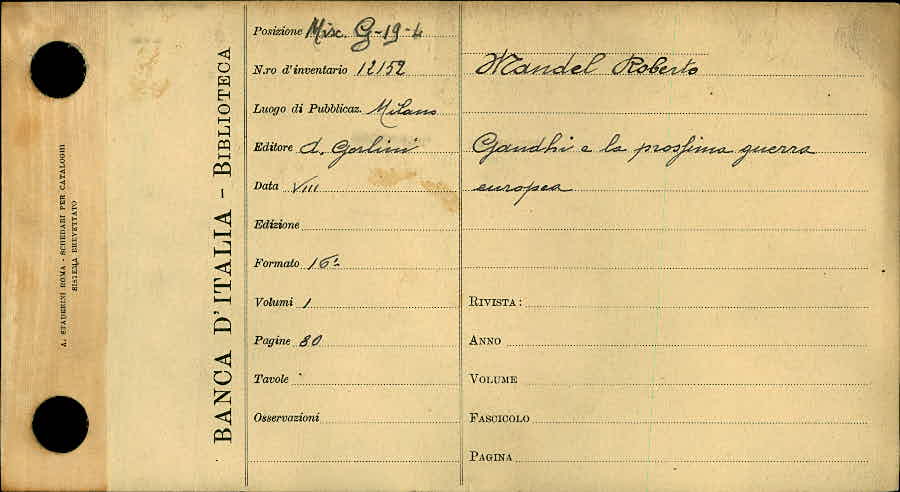 A. STADERINI ROMA - SCHEDARI PER CATALOGHI
SISTEMA BREVETTATO
BANCA D'ITALIA - BIBLIOTECA
Posizione Misc. G-19-4
N.ro d'inventario 12152
Luogo di Pubblicaz. Milano
Editore A. Gorlini
Data VIII
Edizione
Formato 16º
Volumi 1
Pagine 80
Tavole
Osservazioni
Mandel Roberto
Gandhi e la prossima guerra
europea
RIVISTA:
ANNO
VOLUME
FASCICOLO
PAGINA